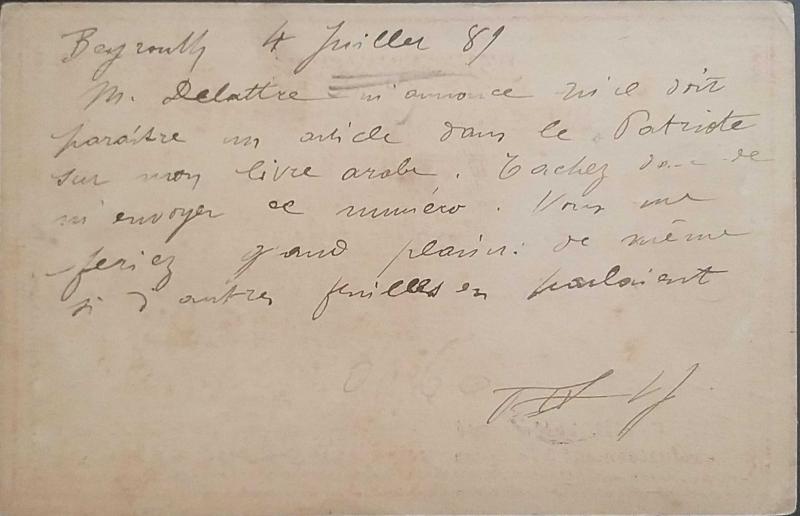 Beyrouth 4 Juillet 89
M. Delattre m'annonce qu'il doit
paraître un article dans le Patriote
sur mon livre arabe. Tachez donc de
m'envoyer ce numéro. Vous me
feriez grand plaisir: de même
si d'autres feuilles en parlaient